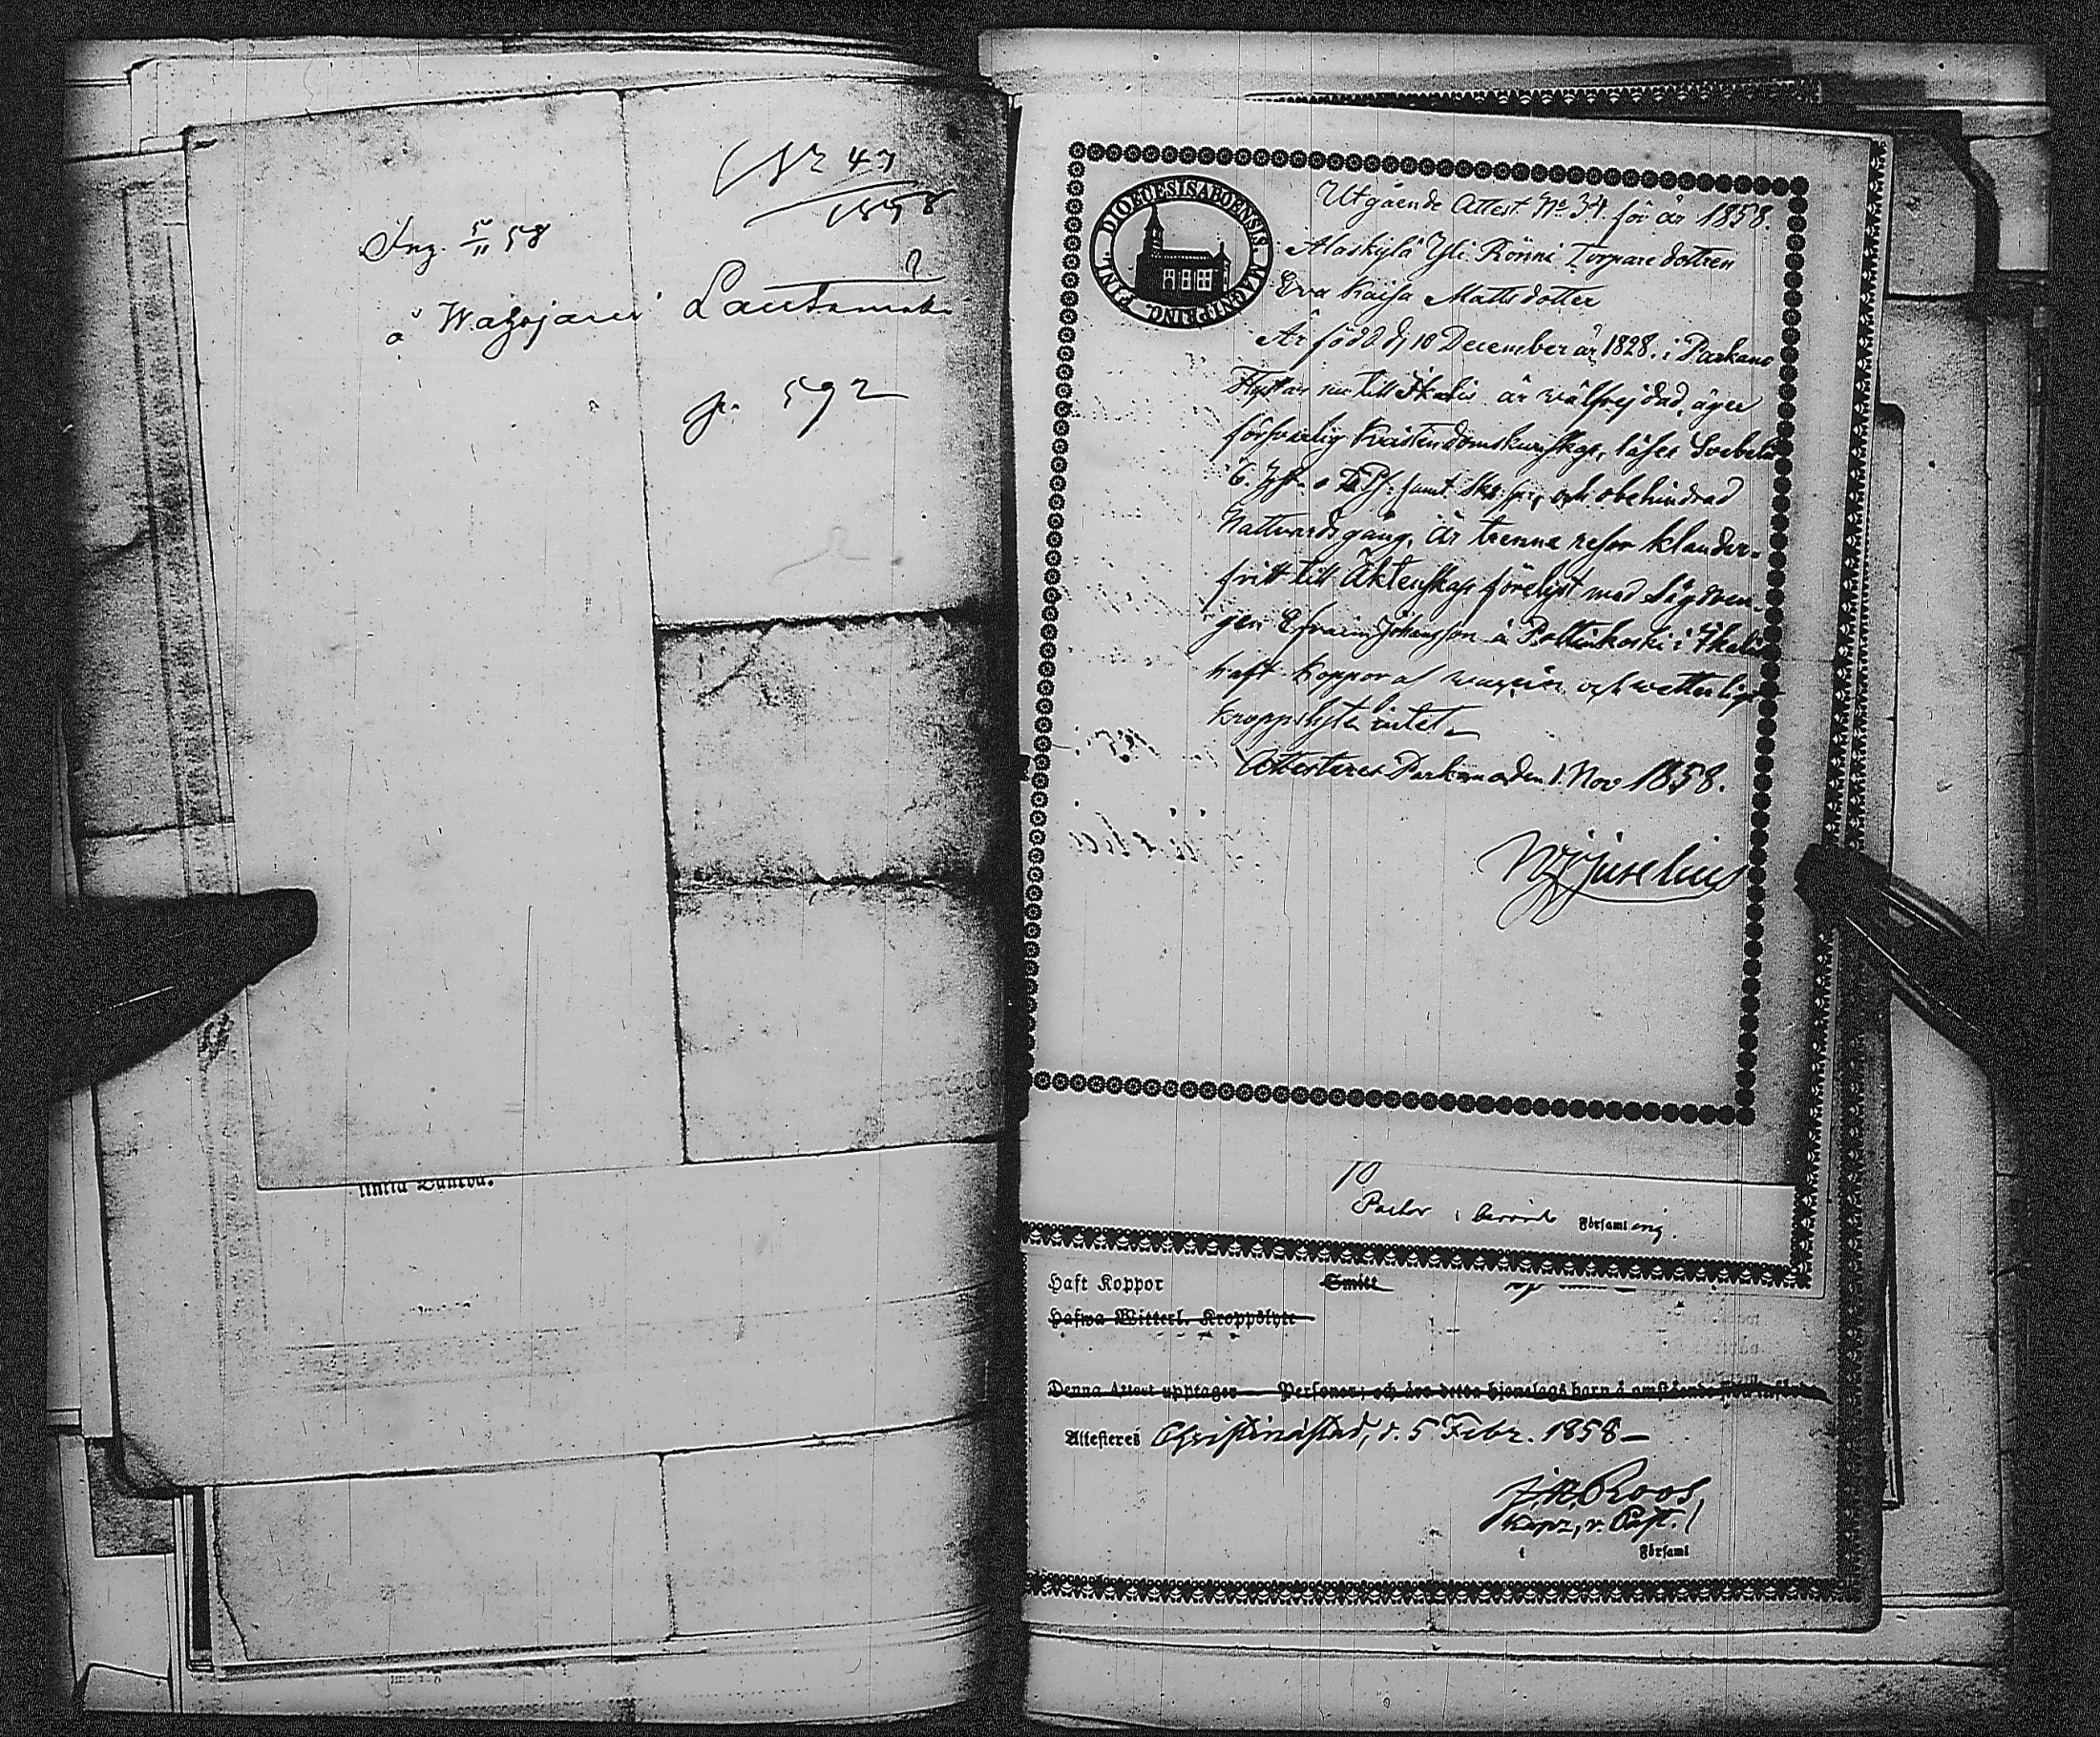 No 47
1858
Ing. 5/11 58
å Wahojärvi Lautamäki
p. 592
DIOECESIS ABOENSIS. MAGNI PRINC. FINL.
Utgående Attest. No 34. för år 1858.
Alaskylä Yli Rönni Torpare dottren
Eva Kaisa Mattsdotter
Är född d. 10 December år 1828. i Parkano
Flyttar nu till Ikalis är välfrejdad, äger
försvarlig Kristendomskunskap, läser Svebelii
samt och obehindrad
Nattvardsgång, är trenne resor klander-
fritt till Äktenskap förelyst med Sågdren-
gen Efraim Johansson å Poltinkoski i Ikalis
haft Koppor af naturen och vetterligt
kroppslyte intet.
Attesteras Parkano den 1 Nov 1858.
Pastor i berörde Församling.
Haft Koppor Smitt
Hafwa Witterl. Kroppslyte
Denna Attest upptager Personer; och äro detta hjonelags barn å omstående
Attesteres Christinestad, d. 5 Febr. 1858
J. N. Roos
Kapl, v. Past.
i Församl